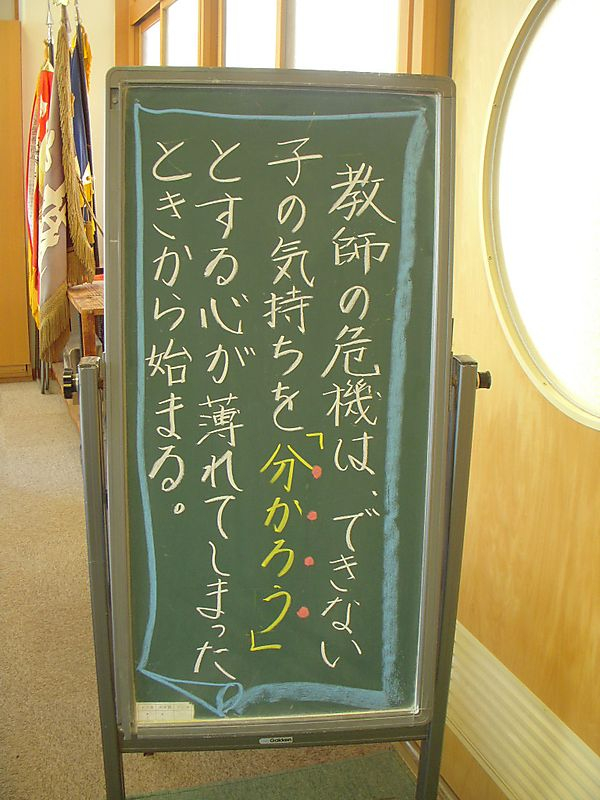 教師の危機は、できない
子の気持ちを「分かろう」
とする心が薄れてしまった
ときから始まる。
Gakken